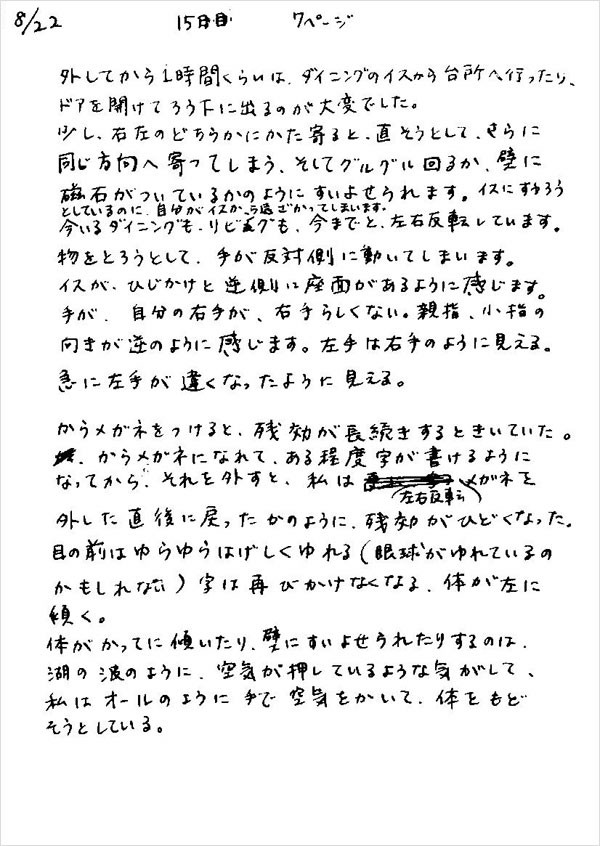 8/22 15日目 7ページ
外してから1時間くらいは、ダイニングのイスから台所へ行ったり、
ドアを開けてろう下に出るのが大変でした。
少し、右左のどちらかにかた寄ると、直そうとして、さらに
同じ方向へ寄ってしまう、そしてグルグル回るか、壁に
磁石がついているかのようにすいよせられます。イスにすわろう
としているのに、自分がイスから遠ざかってしまいます。
今いるダイニングも、リビングも、今までと、左右反転しています。
物をとろうとして、手が反対側に動いてしまいます。
イスが、ひじかけと逆側に座面があるように感じます。
手が、自分の右手が、右手らしくない。親指、小指の
向きが逆のように感じます。左手は右手のように見える。
急に左手が遠くなったように見える。
からメガネをつけると、残効が長続きするときいていた。
からメガネになれて、ある程度字が書けるように
なってから、それを外すと、私は(左右反転)メガネを
外した直後に戻ったかのように、残効がひどくなった。
目の前はゆらゆらはげしくゆれる(眼球がゆれているの
かもしれない)字は再びかけなくなる、体が左に
傾く。
体がかってに傾いたり、壁にすいよせられたりするのは、
湖の波のように、空気が押しているような気がして、
私はオールのように手で空気をかいて、体をもど
そうとしている。